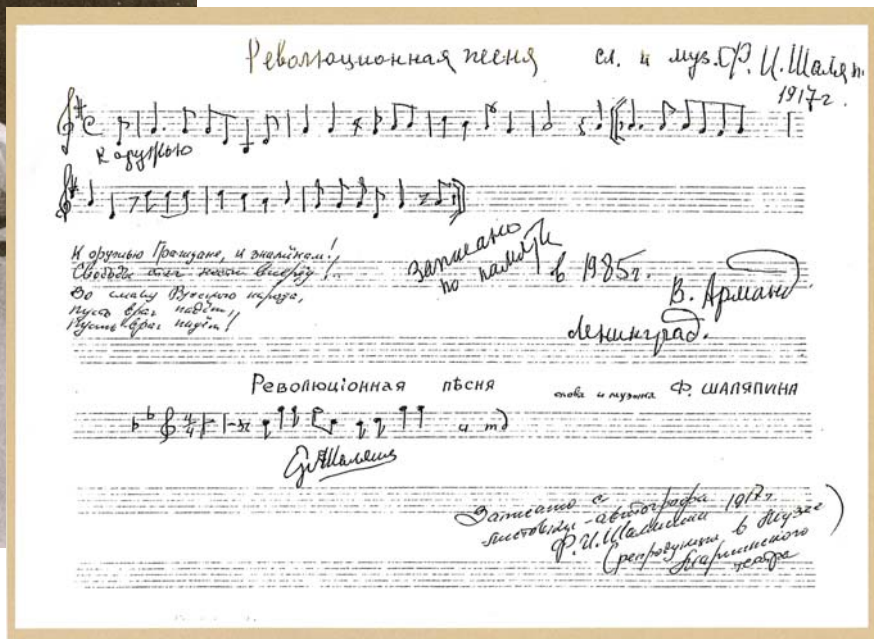 Революционная песня сл. и муз. Ф. И. Шаляп.
1917 г.
К оружью
К оружью Граждане, к знамёнам!
Свободы стяг неси вперёд!
Во славу Русского народа,
пусть враг падёт,
Пусть враг падёт!
Записано
по памяти
в 1985 г.
В. Арманд
Ленинград.
Революціонная пѣсня слова и музыка Ф. ШАЛЯПИНА
и т д
Записано с
листовки-автографа 1917 г.
Ф. И. Шаляпина
(репродукция в Музее
Мариинского
театра)